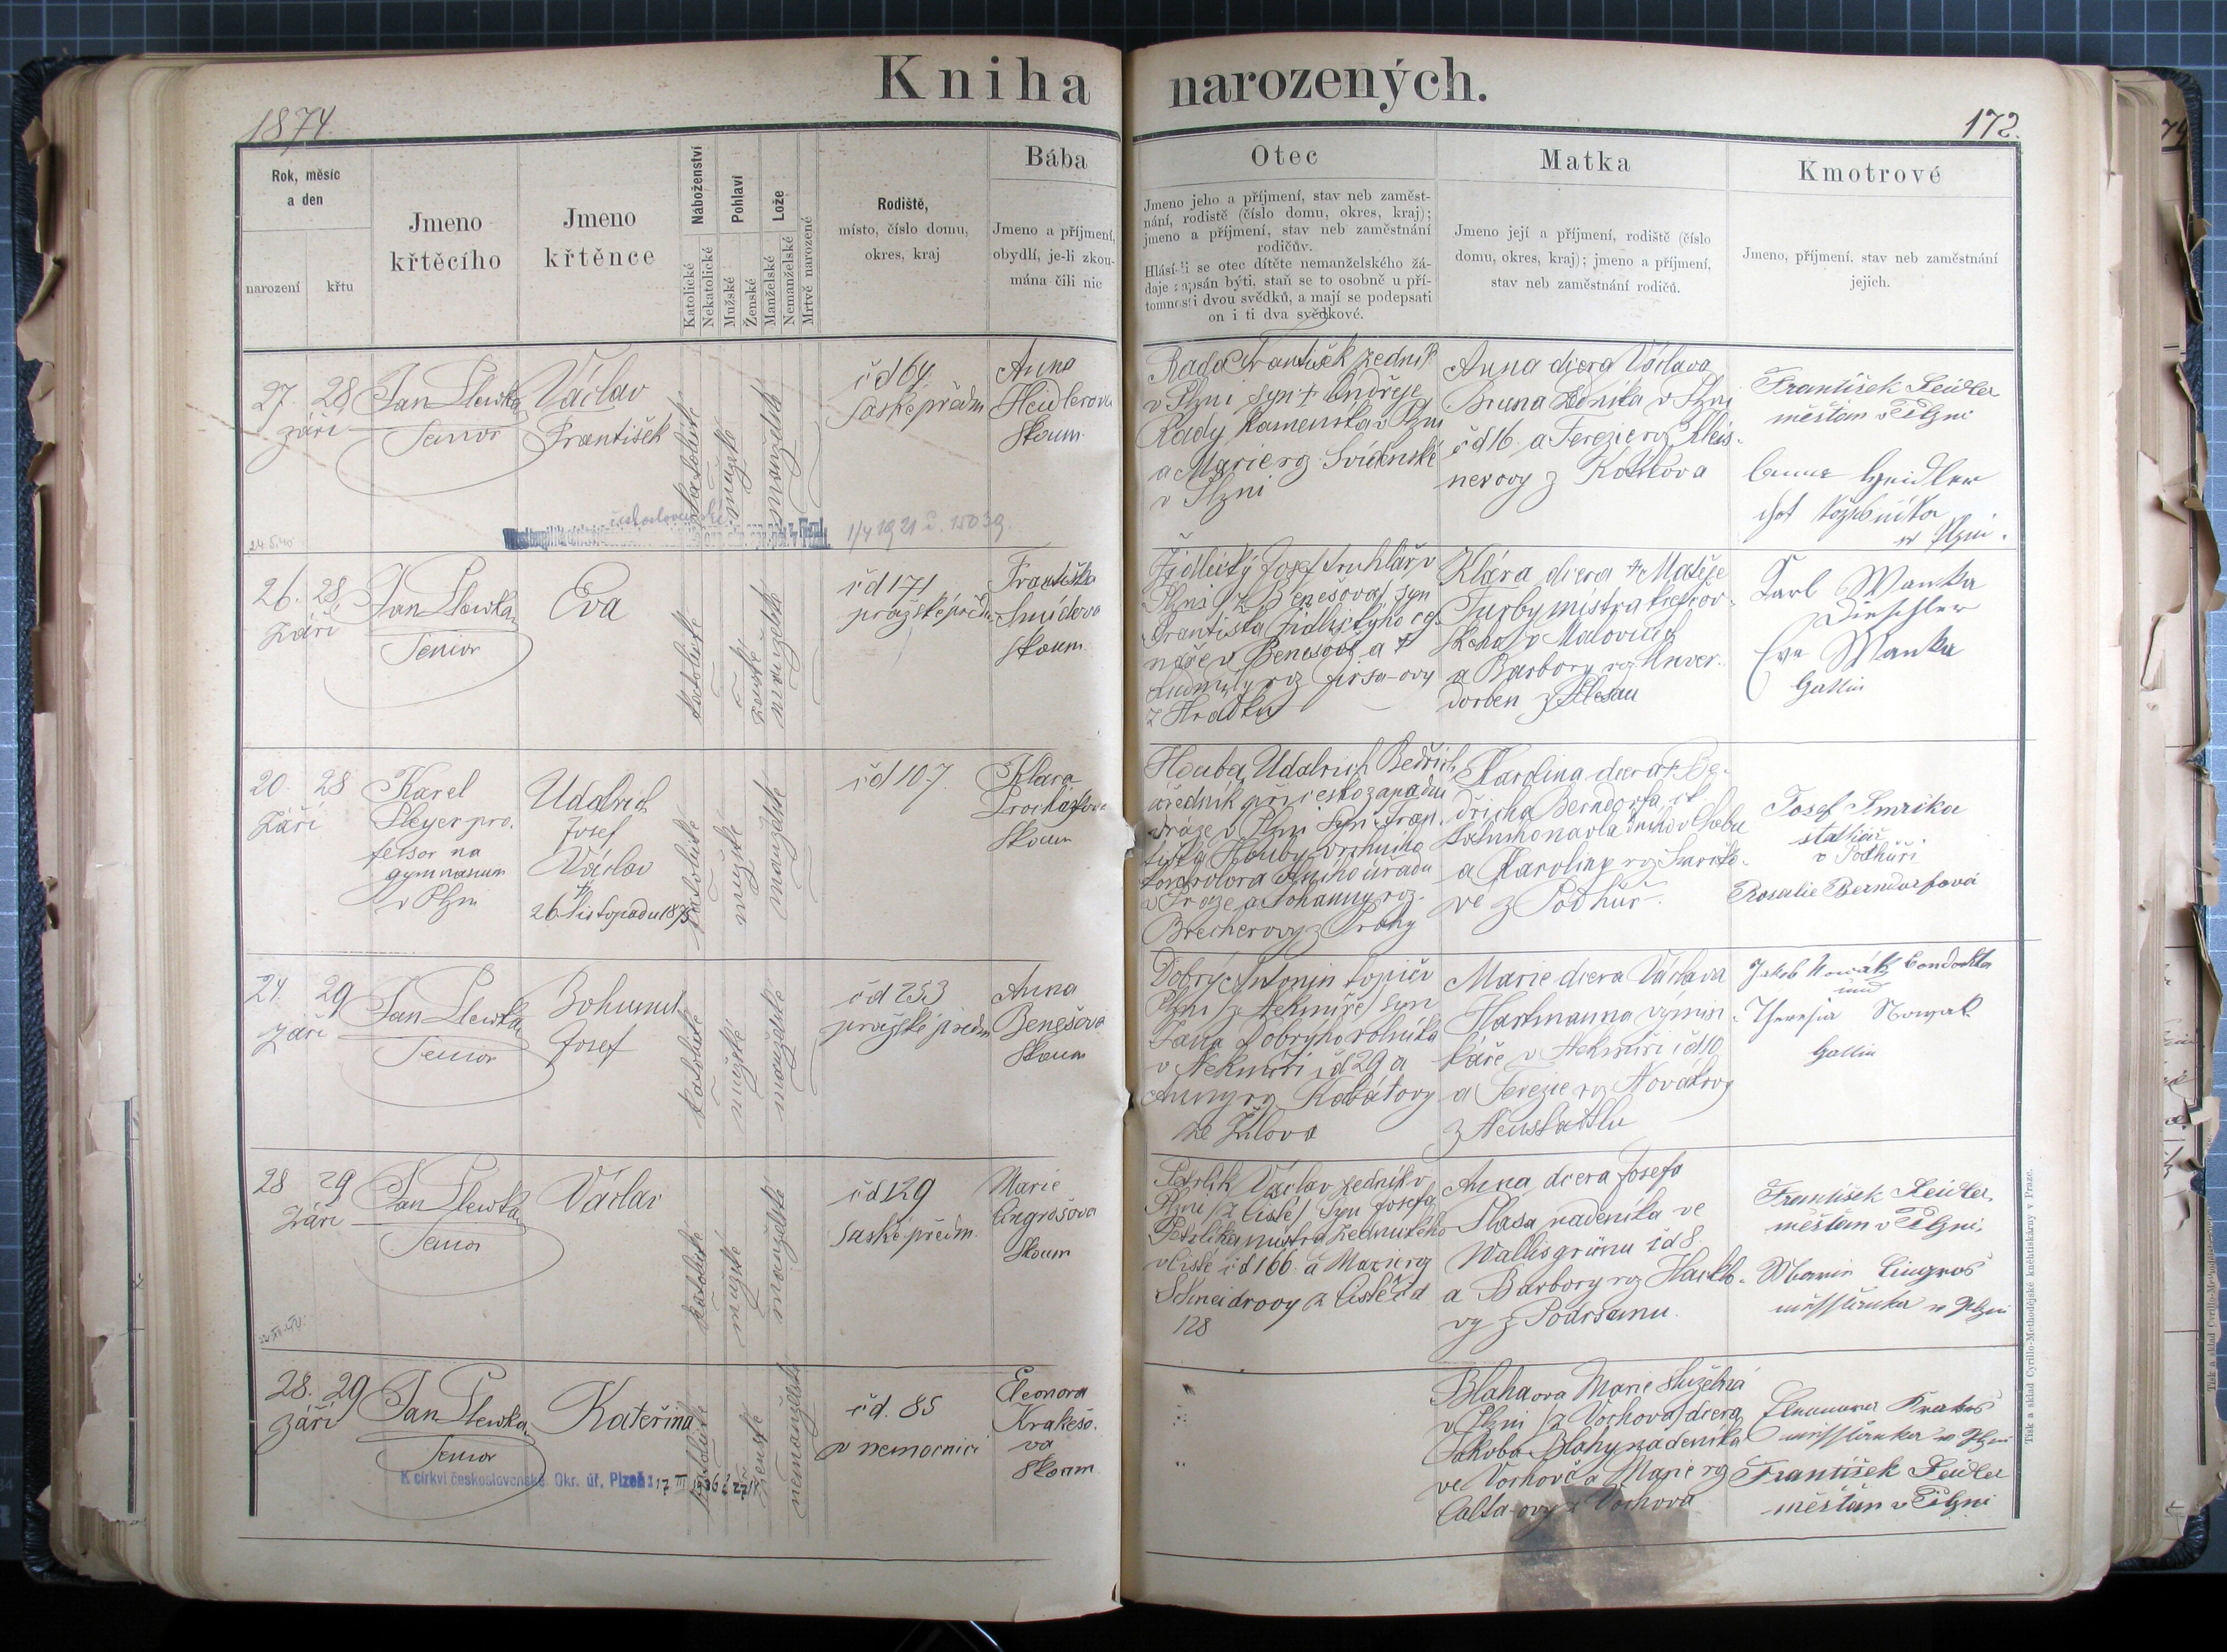 Kniha narozených.
1874.
172.
Rok, měsíc
a den
narození
křtu
Jmeno
křtěcího
Jmeno
křtěnce
Náboženství
Katolické
Nekatolické
Pohlaví
Mužské
Ženské
Lože
Manželské
Nemanželské
Mrtvě narozené
Rodiště,
místo, číslo domu,
okres, kraj
Bába
Jmeno a příjmení,
obydlí, je-li zkou-
mána čili nic
Otec
Jmeno jeho a příjmení, stav neb zaměst-
nání, rodistě (číslo domu, okres, kraj);
jmeno a příjmení, stav neb zaměstnání
rodičův.
Hlásí-li se otec dítěte nemanželského žá-
daje zapsán býti, staň se to osobně u pří-
tomnosti dvou svědků, a mají se podepsati
on i ti dva svědkové.
Matka
Jmeno její a příjmení, rodiště (číslo
domu, okres, kraj); jmeno a příjmení,
stav neb zaměstnání rodičů.
Kmotrové
Jmeno, příjmení. stav neb zaměstnání
jejich.
27. 28
září
Jan Slewka
Senior
Václav
František
katolické
mužské
manželské
čd 64
saské předm
Anna
Heidlerova
skoum
Rada František zedník
v Plzni syn + Ondřeje
Rady kameníka v Plzni
a Marie rz.
v Plzni
Anna dcera Václava
Bruna zedníka v Plzni
čd 16. a Terezie rz. Kleis-
nerovy z
František Seidler
měštan v Plzni
v Plzni.
24.5.40
československé
1/4 1921 č. 15039.
26. 28
září
Jan Slewka
Senior
Eva
katolické
ženské
manželské
čd 171
pražské předm
Františka
Šmídova
skoum
Židlický Josef truhlář v
Plzni /z Benešova/ syn
Františka Židlického
v Benešově a +
Ludmily rz
z Hrádku
Klára dcera + Matěje
Furby mistra
v Malovicích
a Barbory rz.
Karl Wanka
Eva Wanka
Gattin
20. 28
září
Karel
Sleyer pro-
fessor na
gymnasium
v Plzni
Udalrich
Josef
Václav
+
26 listopadu 1875
katolické
mužské
manželské
čd 107
Klara
Procházkova
skoum
Houba Udalrich Bedřich
úředník při českozápadní
dráze v Plzni syn Fran-
tiška Houby vrchního
kontrolora úřadu
v Praze a Johanny roz.
Brecherovy z Prahy
Karolina dcera + Be-
dřicha Berndorfa
v Chebu
a Karoliny rz. Smrčko-
vé z Podhůř.
Josef Smrčka
statkář
v Podhůři
Rosalie Berndorfová
24. 29
září
Jan Slewka
Senior
Bohumil
Josef
katolické
mužské
manželské
čd 253
pražské předm
Anna
Benešova
skoum
Dobrý Antonin topič v
Plzni /z Nekmíře/ syn
Jana Dobrýho rolníka
v Nekmíři čd 29 a
Anny rz. Kabátovy
ze Žilova
Marie dcera Václava
Hartmanna výměn-
káře v Nekmíři čd 10
a Terezie rz. Novákovy
z Neustadtlu
Jakob Nowák Condukta
und
Theresia Nowak
Gattin
28 29
září
Jan Slewka
Senior
Václav
katolické
mužské
manželské
čd 129
saské předm.
Marie
Lingrošova
skoum
Petrlik Václav zedník v
Plzni /z Čisté/ syn Josefa
Petrlika mistra zednického
v Čisté čd 166. a Marie rz
Schneidrovy z Čisté čd
128
Anna dcera Josefa
Plasa nádeníka ve
Wallisgrünu čd 8.
a Barbory rz Hackl-
vy z Podrsamu.
František Seidler
měštan v Plzni.
Marie Lingroš
měšťanka v Plzni
28. 29
září
Jan Slewka
Senior
Kateřina
katolické
ženské
nemanželské
čd. 85
v nemocnici
Eleonora
Krakešo-
va
skoum.
Blahaova Marie služebná
v Plzni /z Vochova/ dcera
Jakoba Blahy nádeníka
ve Vochově a Marie rz
z Vochova
Eleonora Krakeš
měšťanka v Plzni
František Seidler
měštan v Plzni
K církvi československé Okr. úř. Plzeň: 17 III 1936
Tisk a sklad Cyrillo-Methodějské knihtiskárny v Praze.